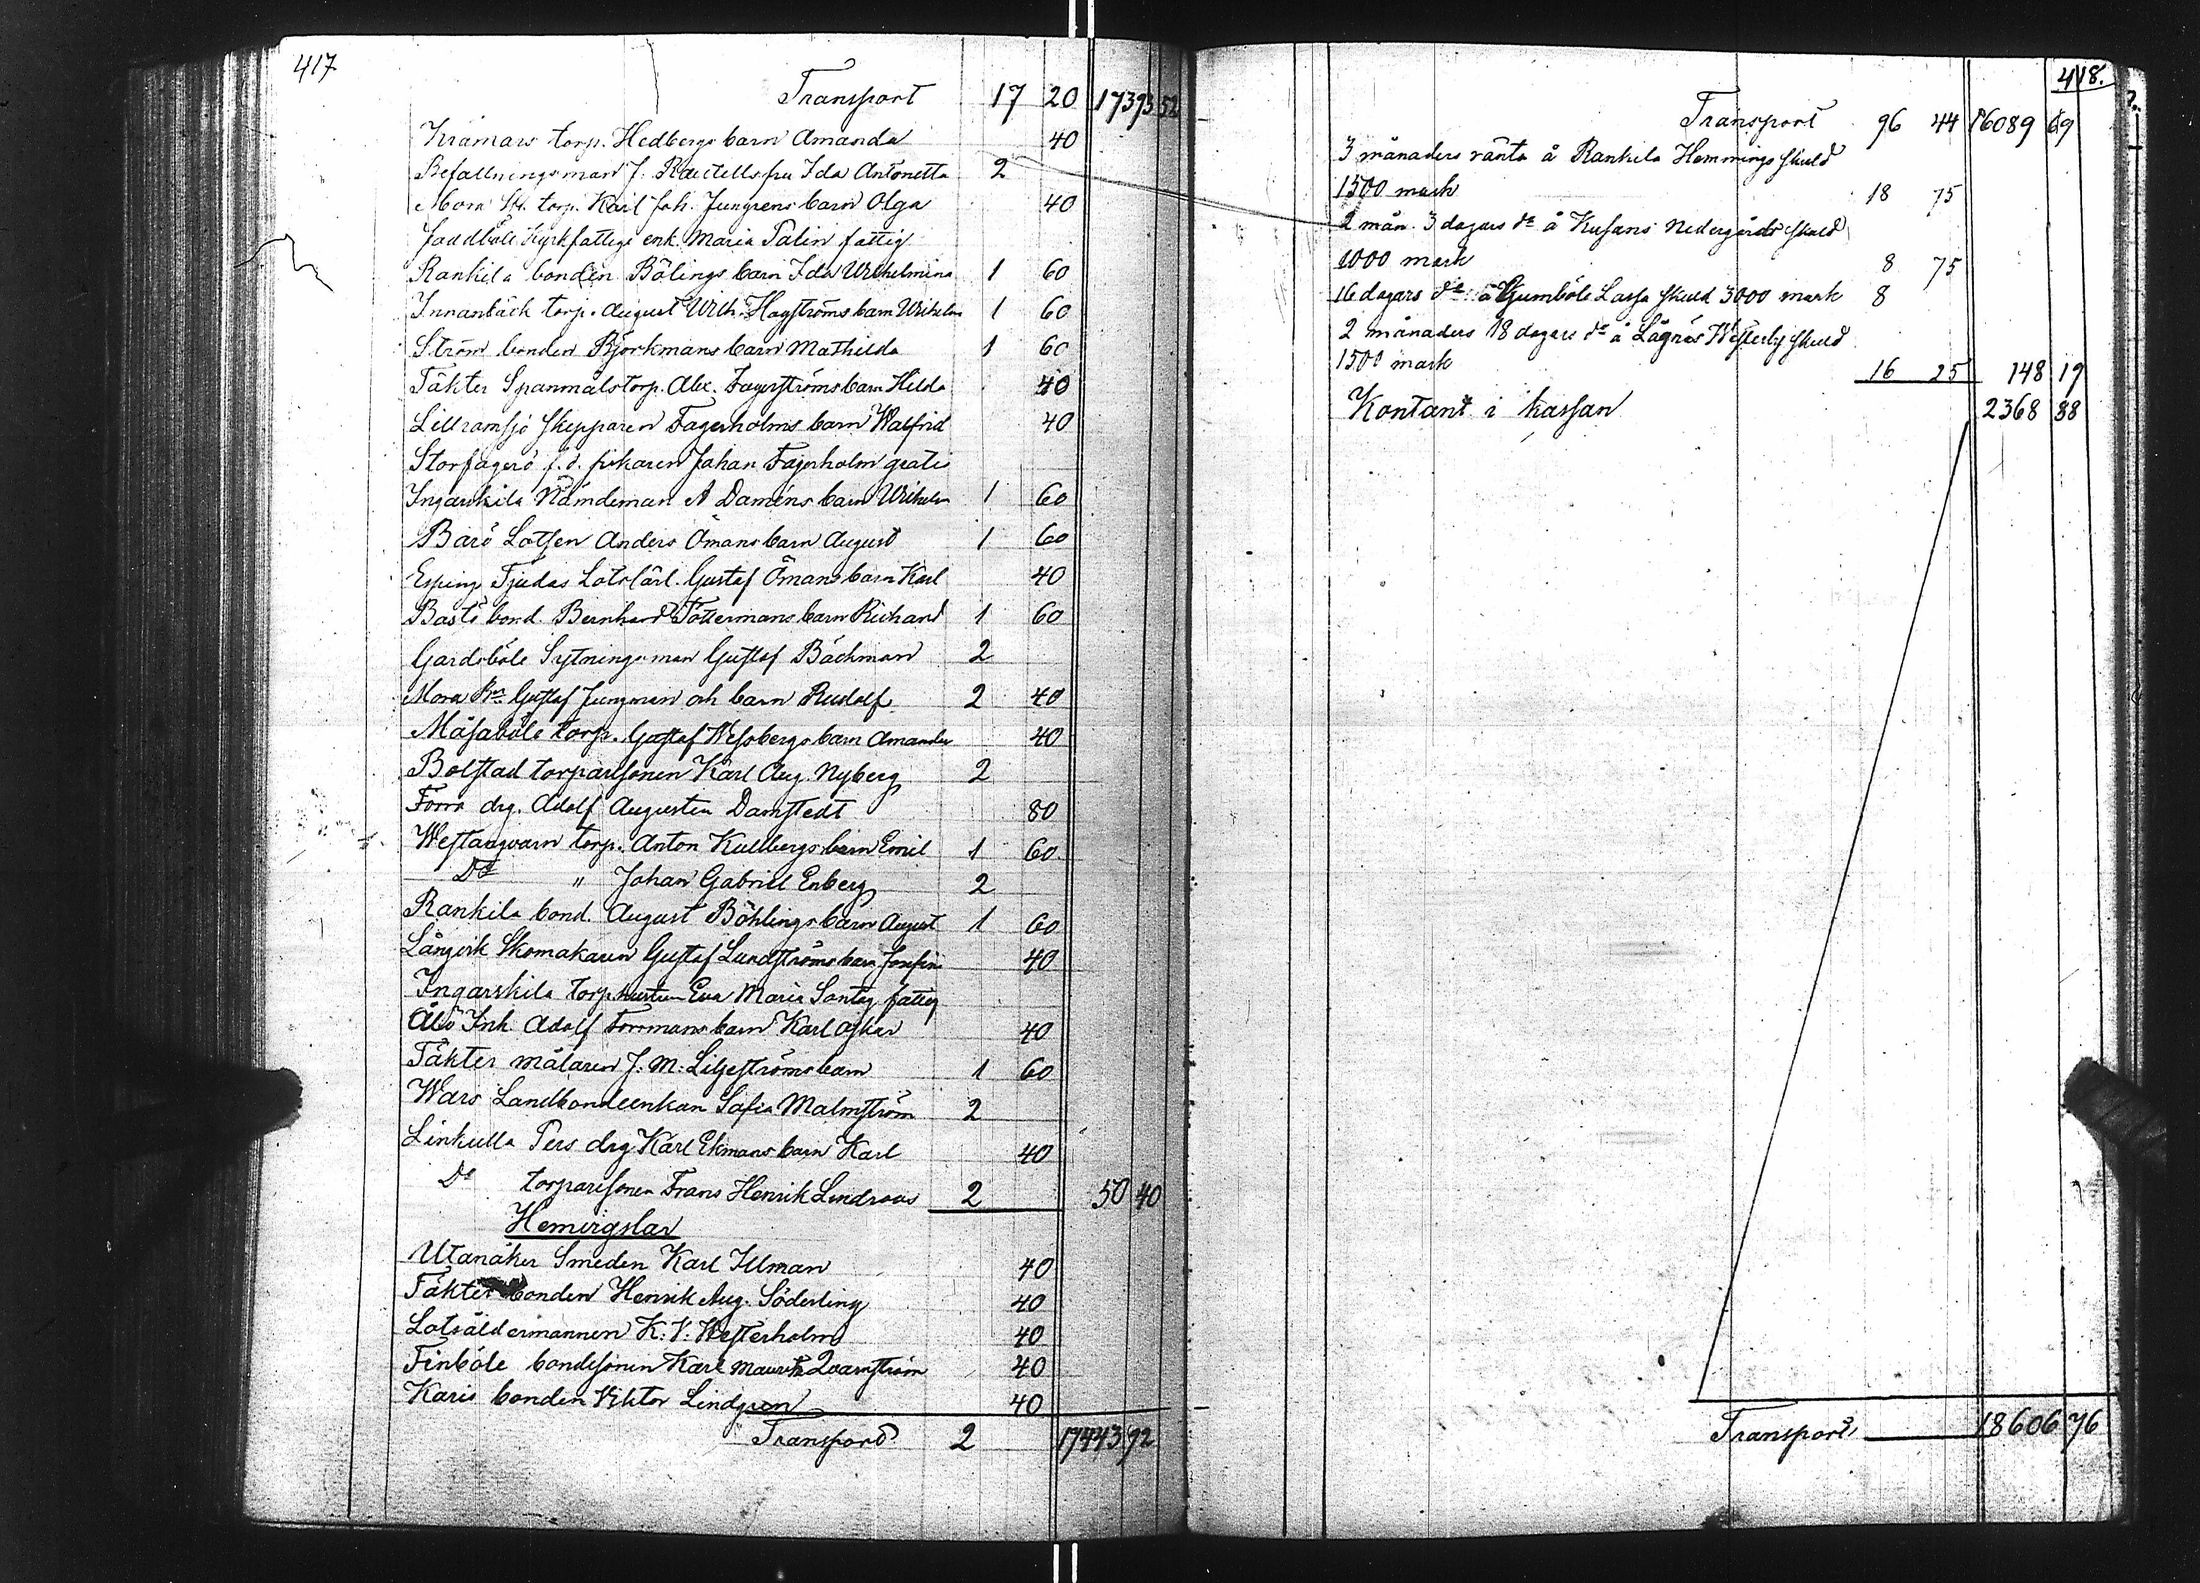 417
Transport 17 20 17393 52
Krämars torp. Hedbergs barn Amanda 40
Befallningsman J. Rautells fru Ida Antonetta 2
Mora torp. Karl Joh. Jungrens barn Olga 40
Jaddböle Kyrkfattige enk. Maria Palin fattig
Rankila bonden Bölings barn Ida Wilhelmina 1 60
Innanbäck torp. August Wilh. Hagströms barn Wilhelm 1 60
Ström bonden Björkmans barn Mathilda 1 60
Täkter Spanmåls torp. Alex. Fagerströms barn Hilda 40
Lillramsjö Skepparen Fagerholms barn Walfrid 40
Storfagerö f.d. fiskaren Johan Fagerholm gratis
Ingarskila Nämdeman A Daméns barn Wilhelm 1 60
Barö Lotsen Anders Ömans barn August 1 60
Esping Tjudas Lotslärl. Gustaf Ömans barn Karl 40
Bastö bond. Bernhard Töttermans barn Richard 1 60
Gardsböle Sytningsman Gustaf Bäckman 2
Mora Gustaf Jungman och barn Rudolf 2 40
Måsaböle torp. Gustaf Wessbergs barn Amanda 40
Bolstad torparesonen Karl Aug. Nyberg 2
Forra drg. Adolf Augustin Damstedt 80
Westanqvarn torp. Anton Kullbergs barn Emil 1 60
Do " Johan Gabriel Enberg 2
Rankila bond. August Böhlings barn August 1 60
Långvik Skomakaren Gustaf Lundströms barn Josefin 40
Ingarskila torp.hustrun Eva Maria Sontag fattig
Älsö Inh. Adolf Forrmans barn Karl Oskar 40
Täkter målaren J. M. Liljeströms barn 1 60
Wars Landbondeenkan Sofia Malmström 2
Linkulla Pers drg Karl Ekmans barn Karl 40
Do torparesonen Frans Henrik Lindroos 2 50 40
Hemvigslar
Utanåker Smeden Karl Illman 40
Täkter bonden Henrik Aug. Söderling 40
Lotsåldermannen K. V. Westerholm 40
Finböle bondesonen Karl Mauritz Qvarnström 40
Karis bonden Viktor Lindgren 40
Transport 2 17443 92
418.
Transport 96 44 16089 69
3 månaders ränta å Rankila Hemmings skuld
1500 mark 18 75
2 mån. 3 dagars do å Kusans Nedergårds skuld
1000 mark 8 75
16 dagars do å Gumböle Lassa skuld 3000 mark 8
2 månaders 18 dagars do å Lågnäs Westerby skuld
1500 mark 16 25 148 19
Kontant i kassan 2368 88
Transport 18606 76